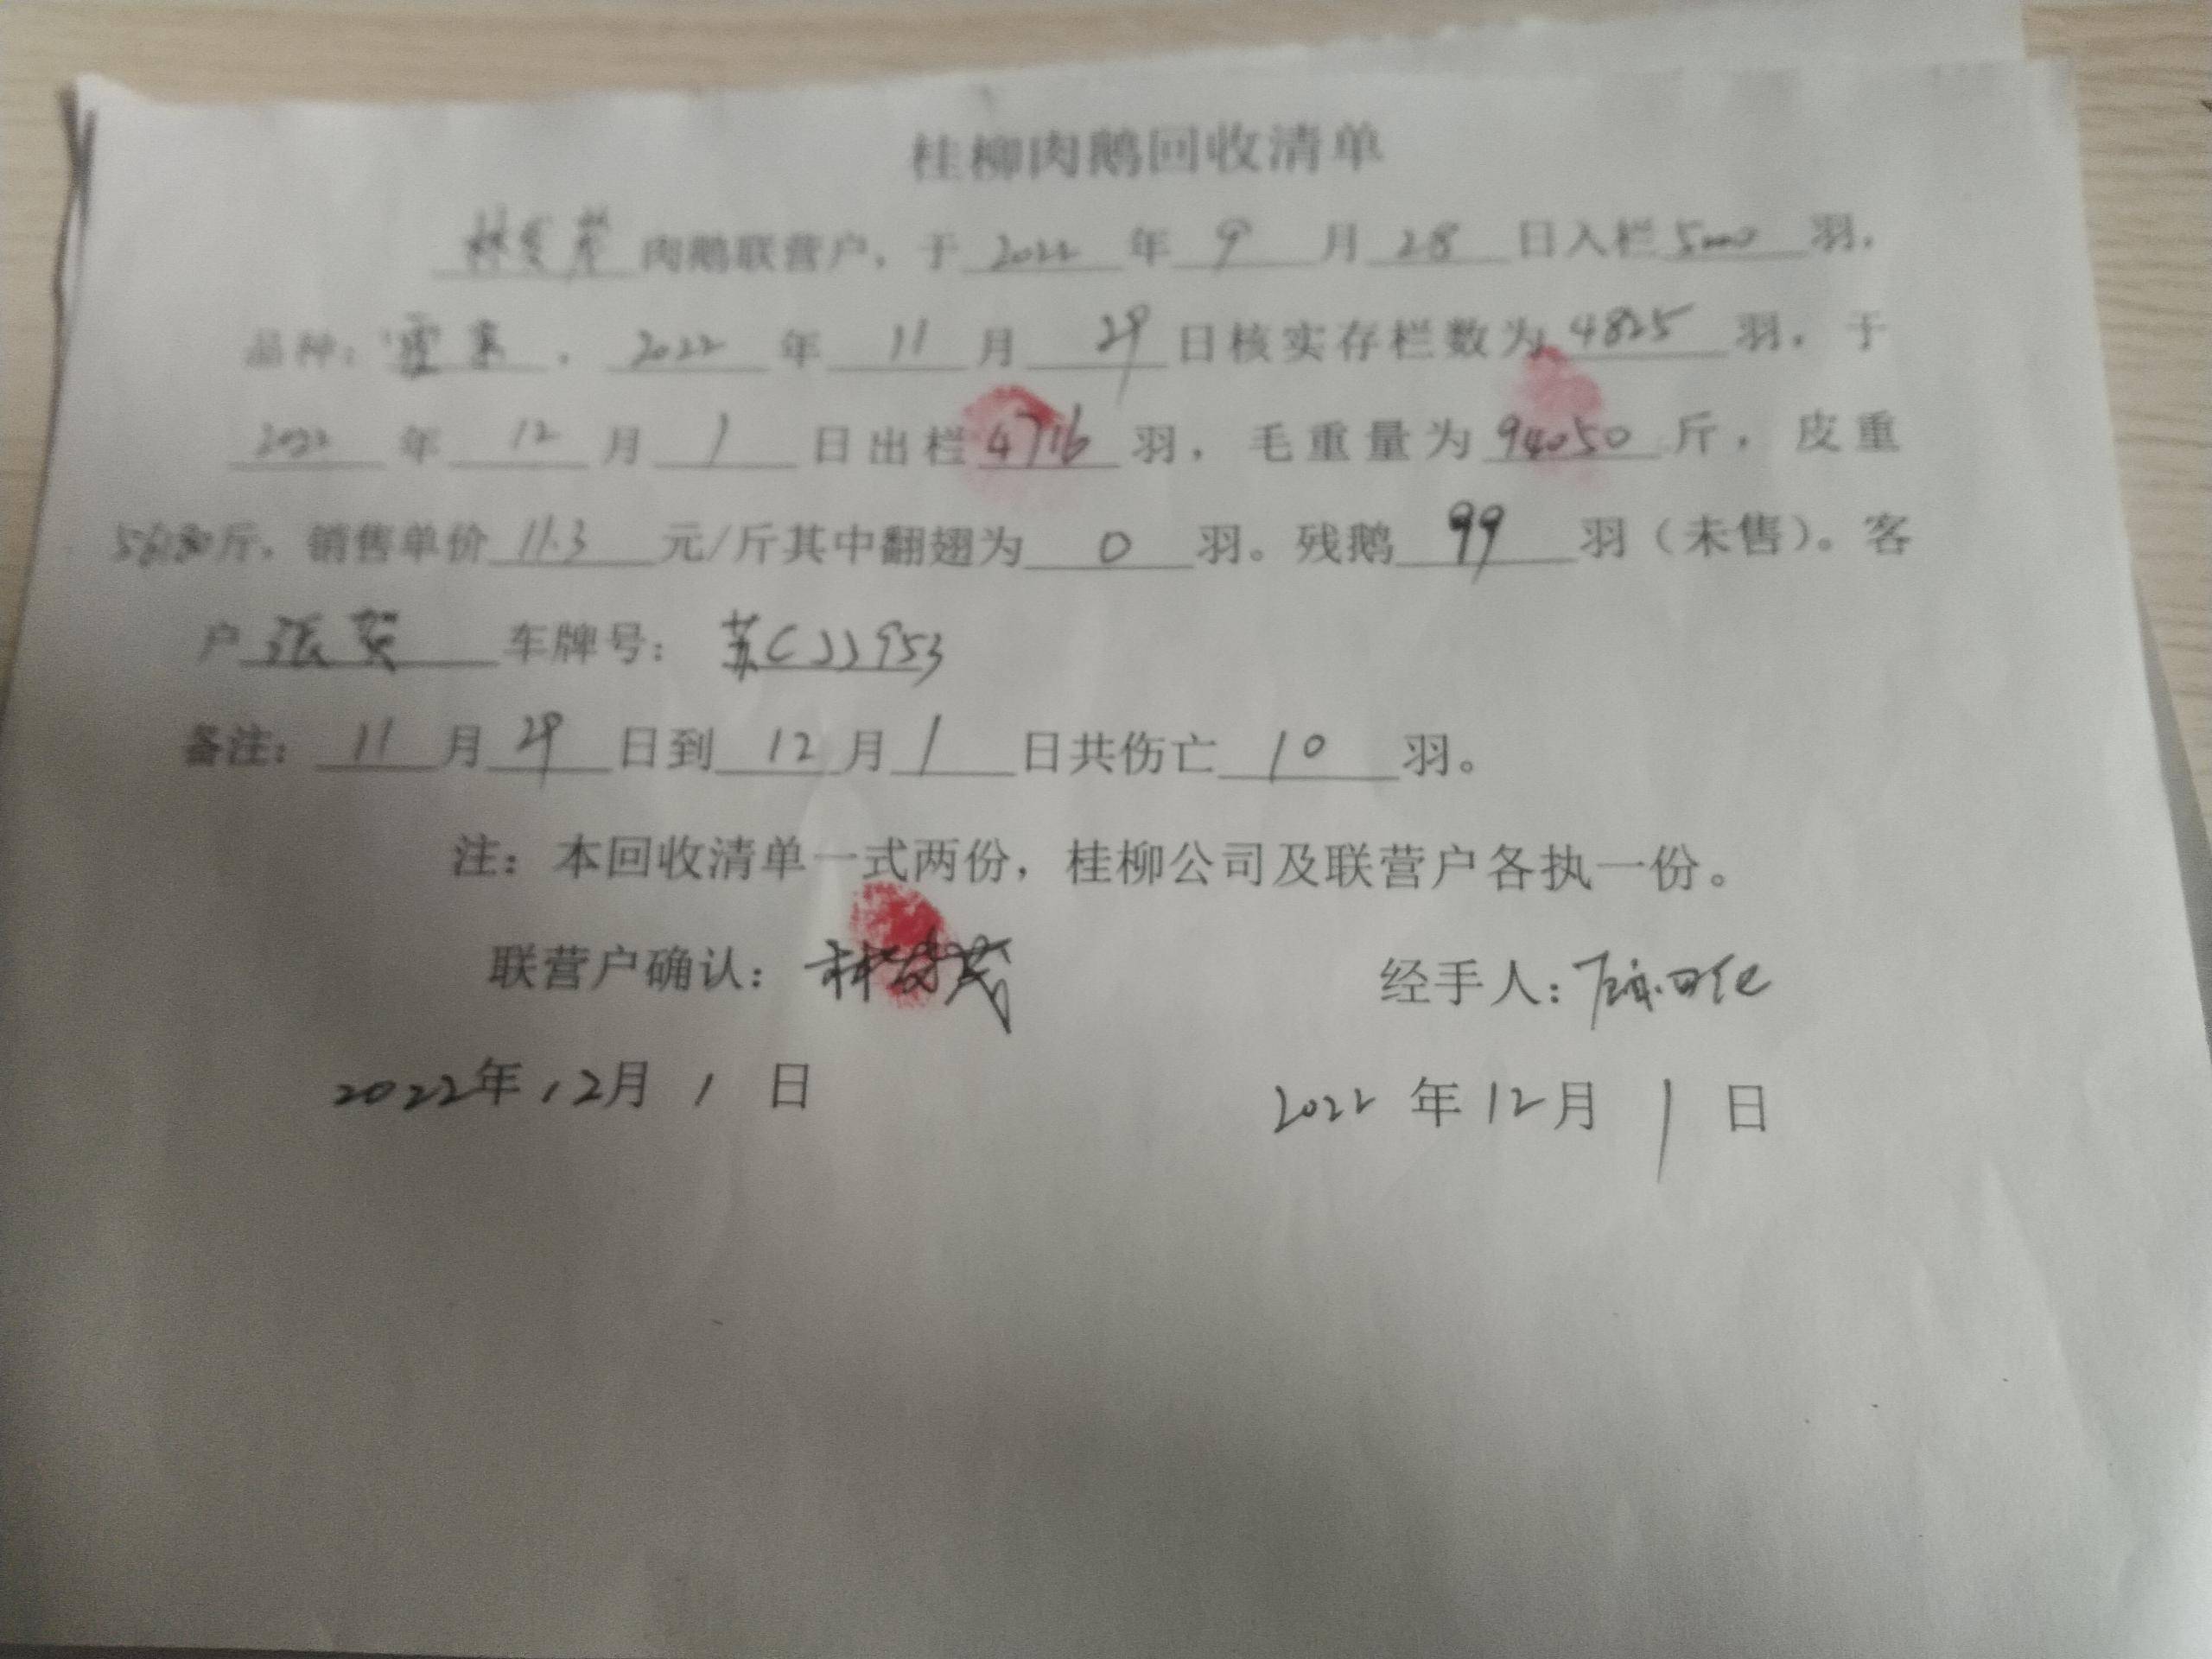 桂柳肉鹅回收清单
肉鹅联营户，于 2022 年 9 月 28 日入栏 5000 羽，
品种： ，2022 年 11 月 29 日核实存栏数为 4825 羽，于
2022 年 12 月 1 日出栏 4716 羽，毛重量为 94050 斤，皮重
斤，销售单价 11.3 元/斤其中翻翅为 0 羽。残鹅 99 羽（未售）。客
户 张 车牌号： 苏CJJ953
备注： 11 月 29 日到 12 月 1 日共伤亡 10 羽。
注：本回收清单一式两份，桂柳公司及联营户各执一份。
联营户确认： 经手人：
2022年12月1日 2022年12月1日